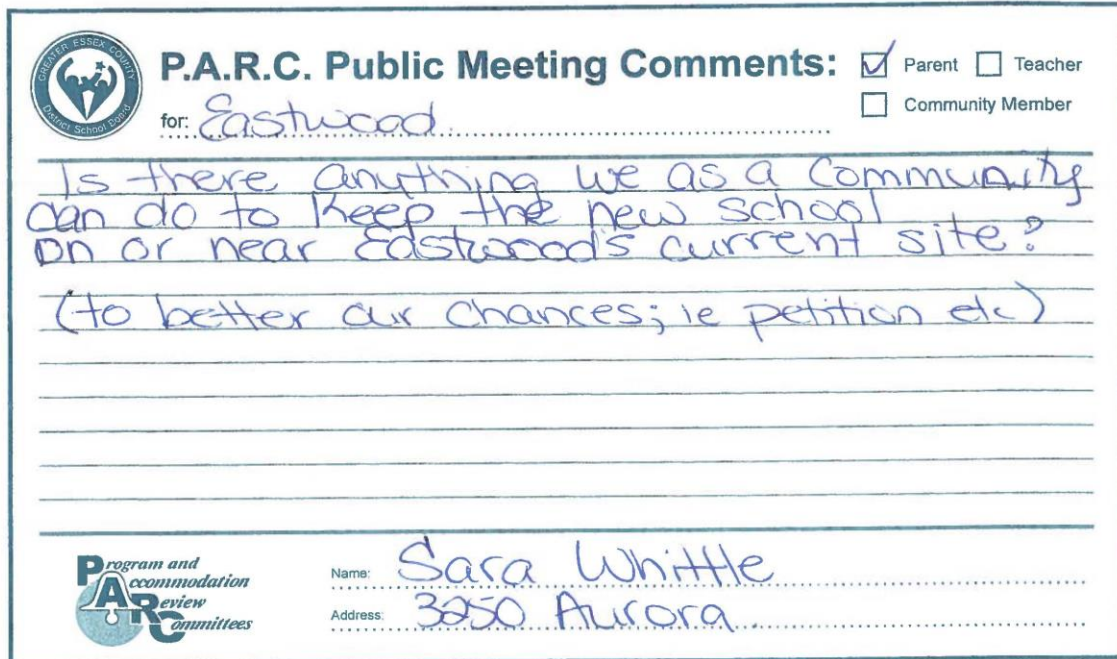 GREATER ESSEX COUNTY
District School Board
P.A.R.C. Public Meeting Comments:
Parent
Teacher
Community Member
for: Eastwood
Is there anything we as a community
can do to keep the new school
on or near Eastwood's current site?
(to better our chances; ie petition etc)
Program and
Accommodation
Review
Committees
Name: Sara Whittle
Address: 3250 Aurora